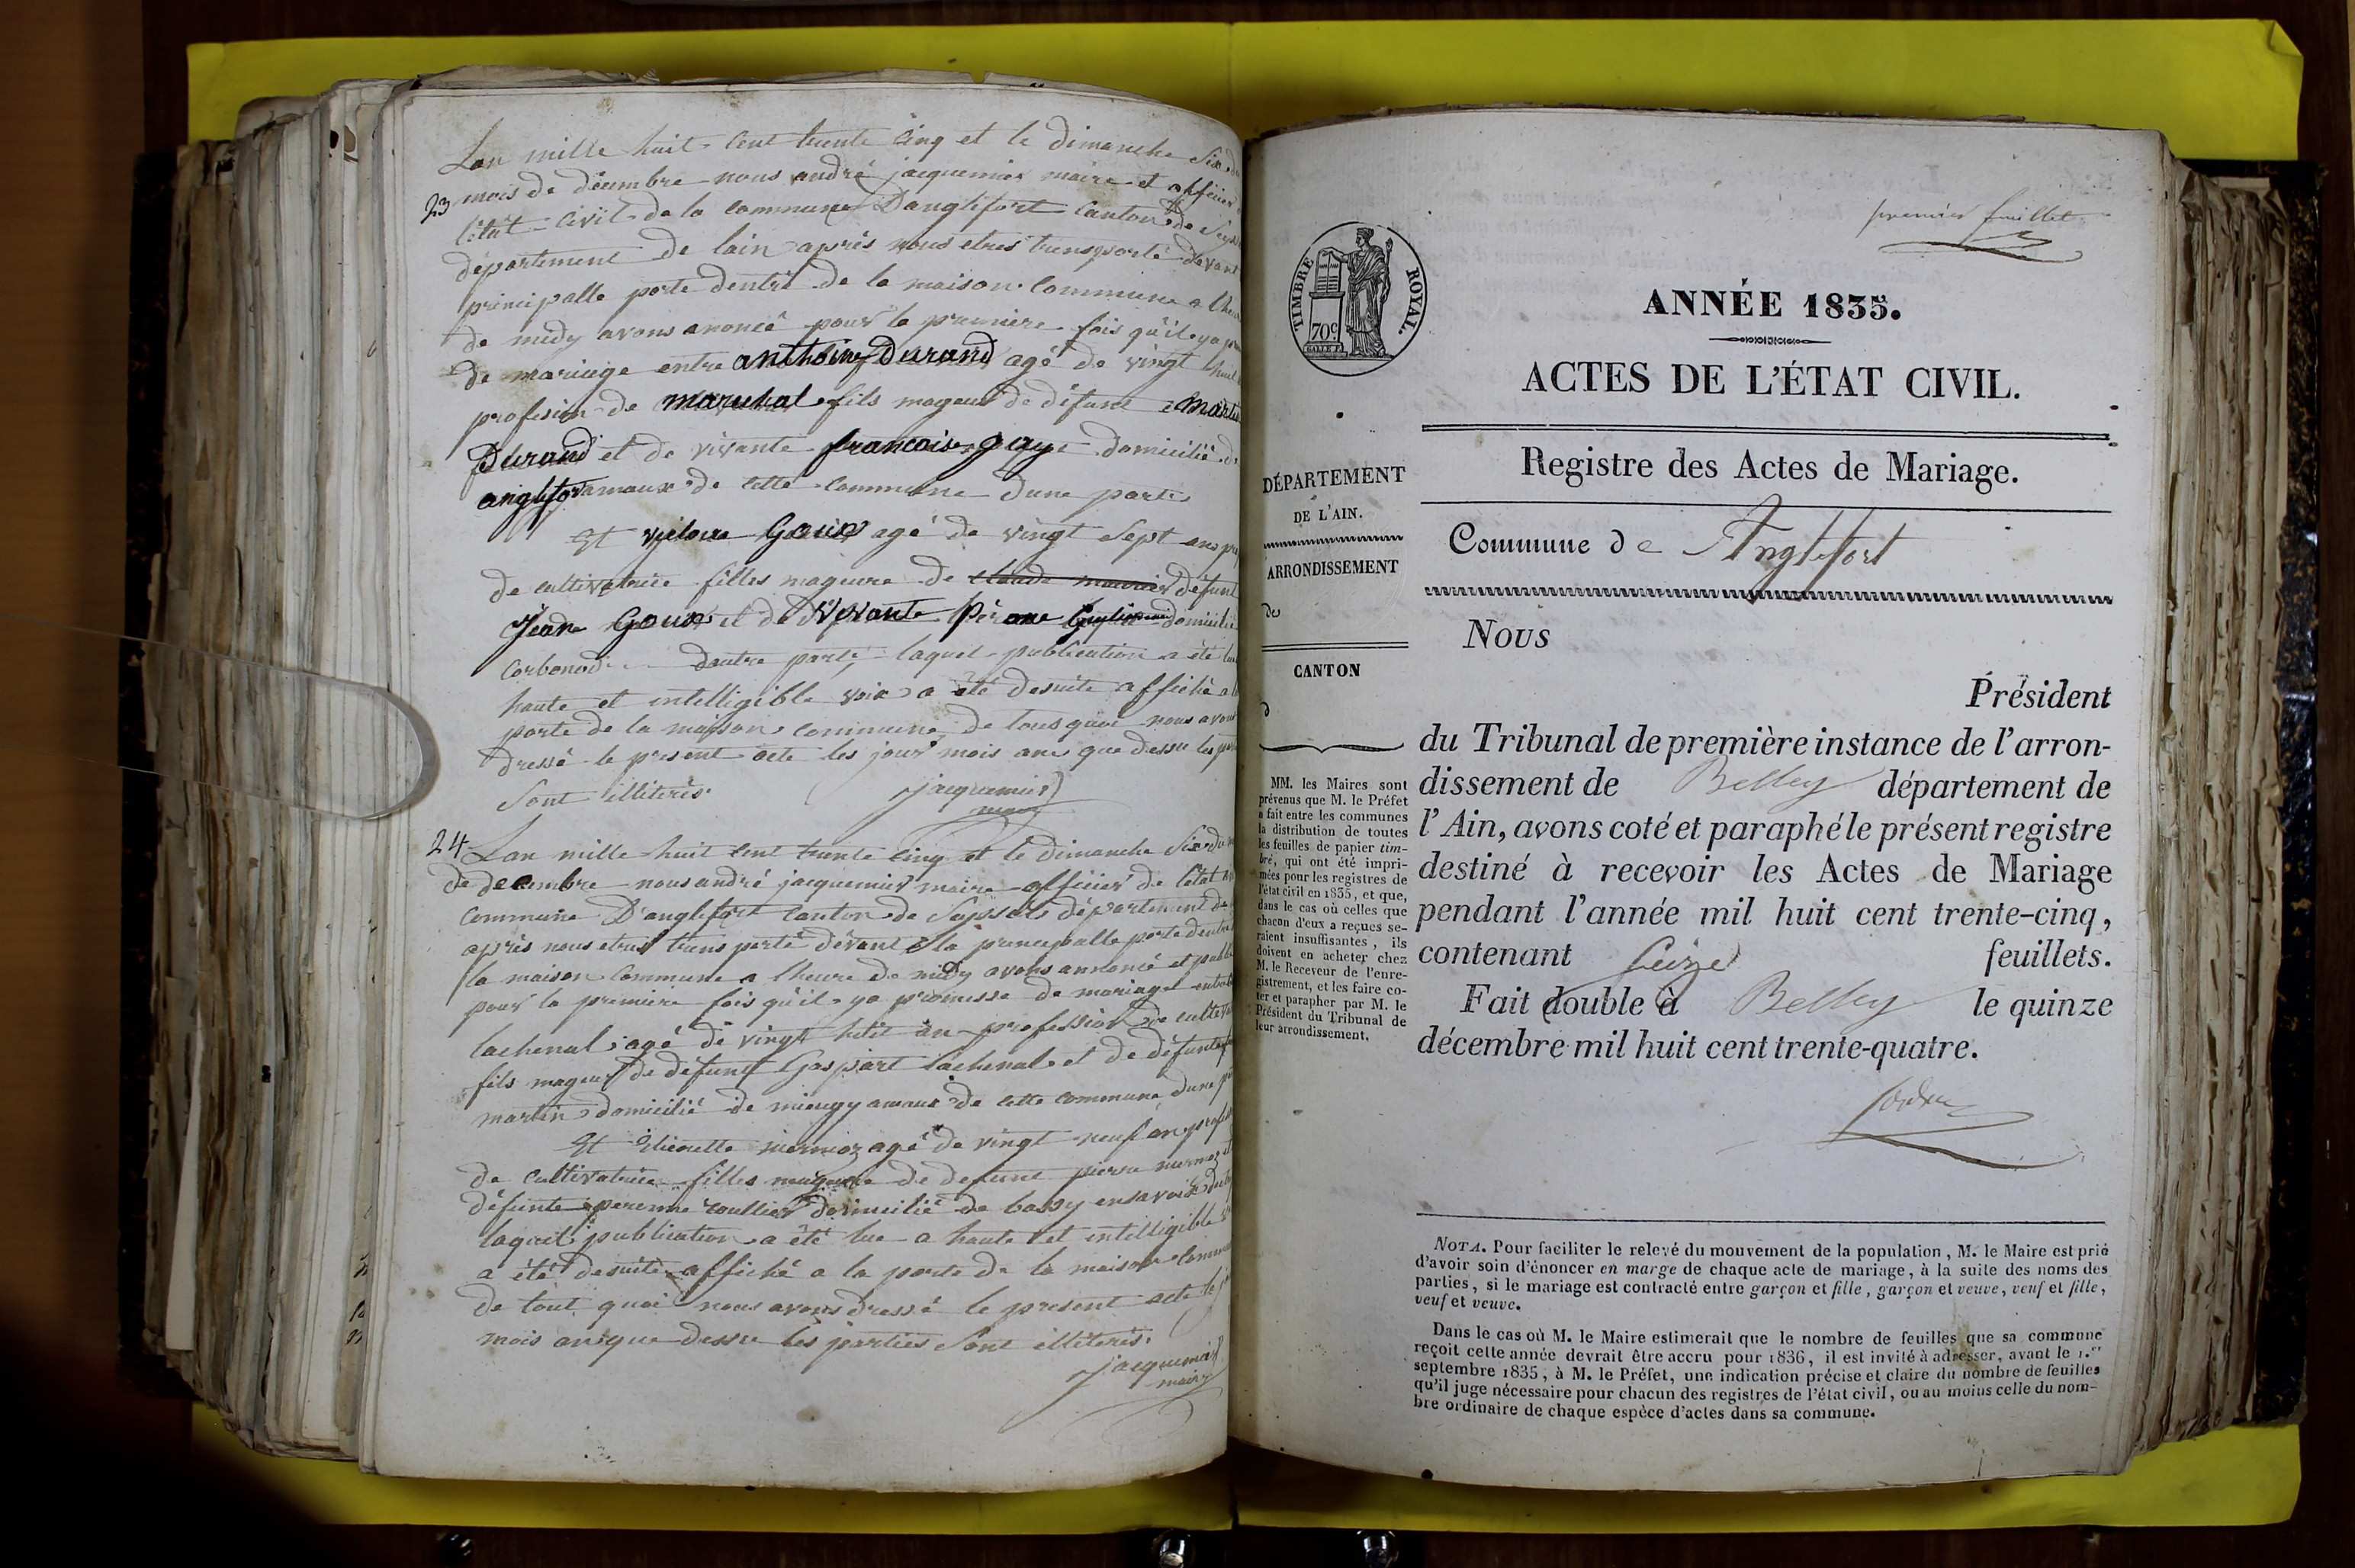 Lan mille huit Cent trente Cinq et le dimanche Six d
23 mois de décembre nous andré jacquemier maire et officier
létat Civil de la Commune Danglefort Canton de Seyss
département de lain après nous etres transporté devant
principalle porte dentré de la maison Commune a lheu
de midy avons anoncé pour la premiere fois qu'il ya
de mariage entre anthoine Durand agé de vingt huit
profesion de marechal fils mageur de défunt Martin
Durand et de vivante francoise gaye domicilié d
anglefort de cette Commune Dune parte
Et victoire Goux agé de vingt Sept ans pr
de cultivatrice filles mageure de claude défunt
Jean Goux et de vivante domicilié
Corbonod Dautre parte laquel publication a été lu
haute et intelligible voix a été desuite affiché a l
porte de la maison Commune de tous quoi nous avons
dressé le present acte les jour mois ane que dessu les par
Sont illiterés jacquemier
maire
24 Lan mille huit Cent trente Cinq et le dimanche Six du m
de decembre nous andré jacquemier maire officier de létat
Commune D'anglefort Canton de Seyssel département de
après nous etres transporté dévant la principalle porte dentré
la maison Commune a lheure de midy avons annoncé et publi
pour la premiere fois qu'il ya promesse de mariage entre
lachenal agé de vingt huit an profession de cultiva
fils mageur de défunt Gaspart lachenal et de défunte
martin domicilié de mieugy de cette Commune Dune p
Et Etienette mermoz agé de vingt neuf an profe
de Cultivatrice filles mageure de defunt pierre mermoz et
défunte perenne roullier domicilié de bassy en savoix
laquel publication a été lue a haute et intelligible v
a été desuite affiché a la porte de la maison Commu
de tout quoi nous avons dressé le present acte les j
mois an que dessu les parties Sont illiterés
jacquemier
maire
premier feuillet
TIMBRE ROYAL.
70c
ANNÉE 1835.
ACTES DE L'ÉTAT CIVIL.
Registre des Actes de Mariage.
DÉPARTEMENT
DE L'AIN.
ARRONDISSEMENT
de
CANTON
d
MM. les Maires sont
prévenus que M. le Préfet
a fait entre les communes
la distribution de toutes
les feuilles de papier tim-
bré, qui ont été impri-
mées pour les registres de
l'état civil en 1835, et que,
dans le cas où celles que
chacun d'eux a reçues se-
raient insuffisantes, ils
doivent en acheter chez
M. le Receveur de l'enre-
gistrement, et les faire co-
ter et parapher par M. le
Président du Tribunal de
leur arrondissement.
Commune de Anglefort
Nous
Président
du Tribunal de première instance de l'arron-
dissement de Belley département de
l'Ain, avons coté et paraphé le présent registre
destiné à recevoir les Actes de Mariage
pendant l'année mil huit cent trente-cinq,
contenant Seize feuillets.
Fait double à Belley le quinze
décembre mil huit cent trente-quatre.
NOTA. Pour faciliter le relevé du mouvement de la population, M. le Maire est prié
d'avoir soin d'énoncer en marge de chaque acte de mariage, à la suite des noms des
parties, si le mariage est contracté entre garçon et fille, garçon et veuve, veuf et fille,
veuf et veuve.
Dans le cas où M. le Maire estimerait que le nombre de feuilles que sa commune
reçoit cette année devrait être accru pour 1836, il est invité à adresser, avant le 1.er
septembre 1835, à M. le Préfet, une indication précise et claire du nombre de feuilles
qu'il juge nécessaire pour chacun des registres de l'état civil, ou au moins celle du nom-
bre ordinaire de chaque espèce d'actes dans sa commune.